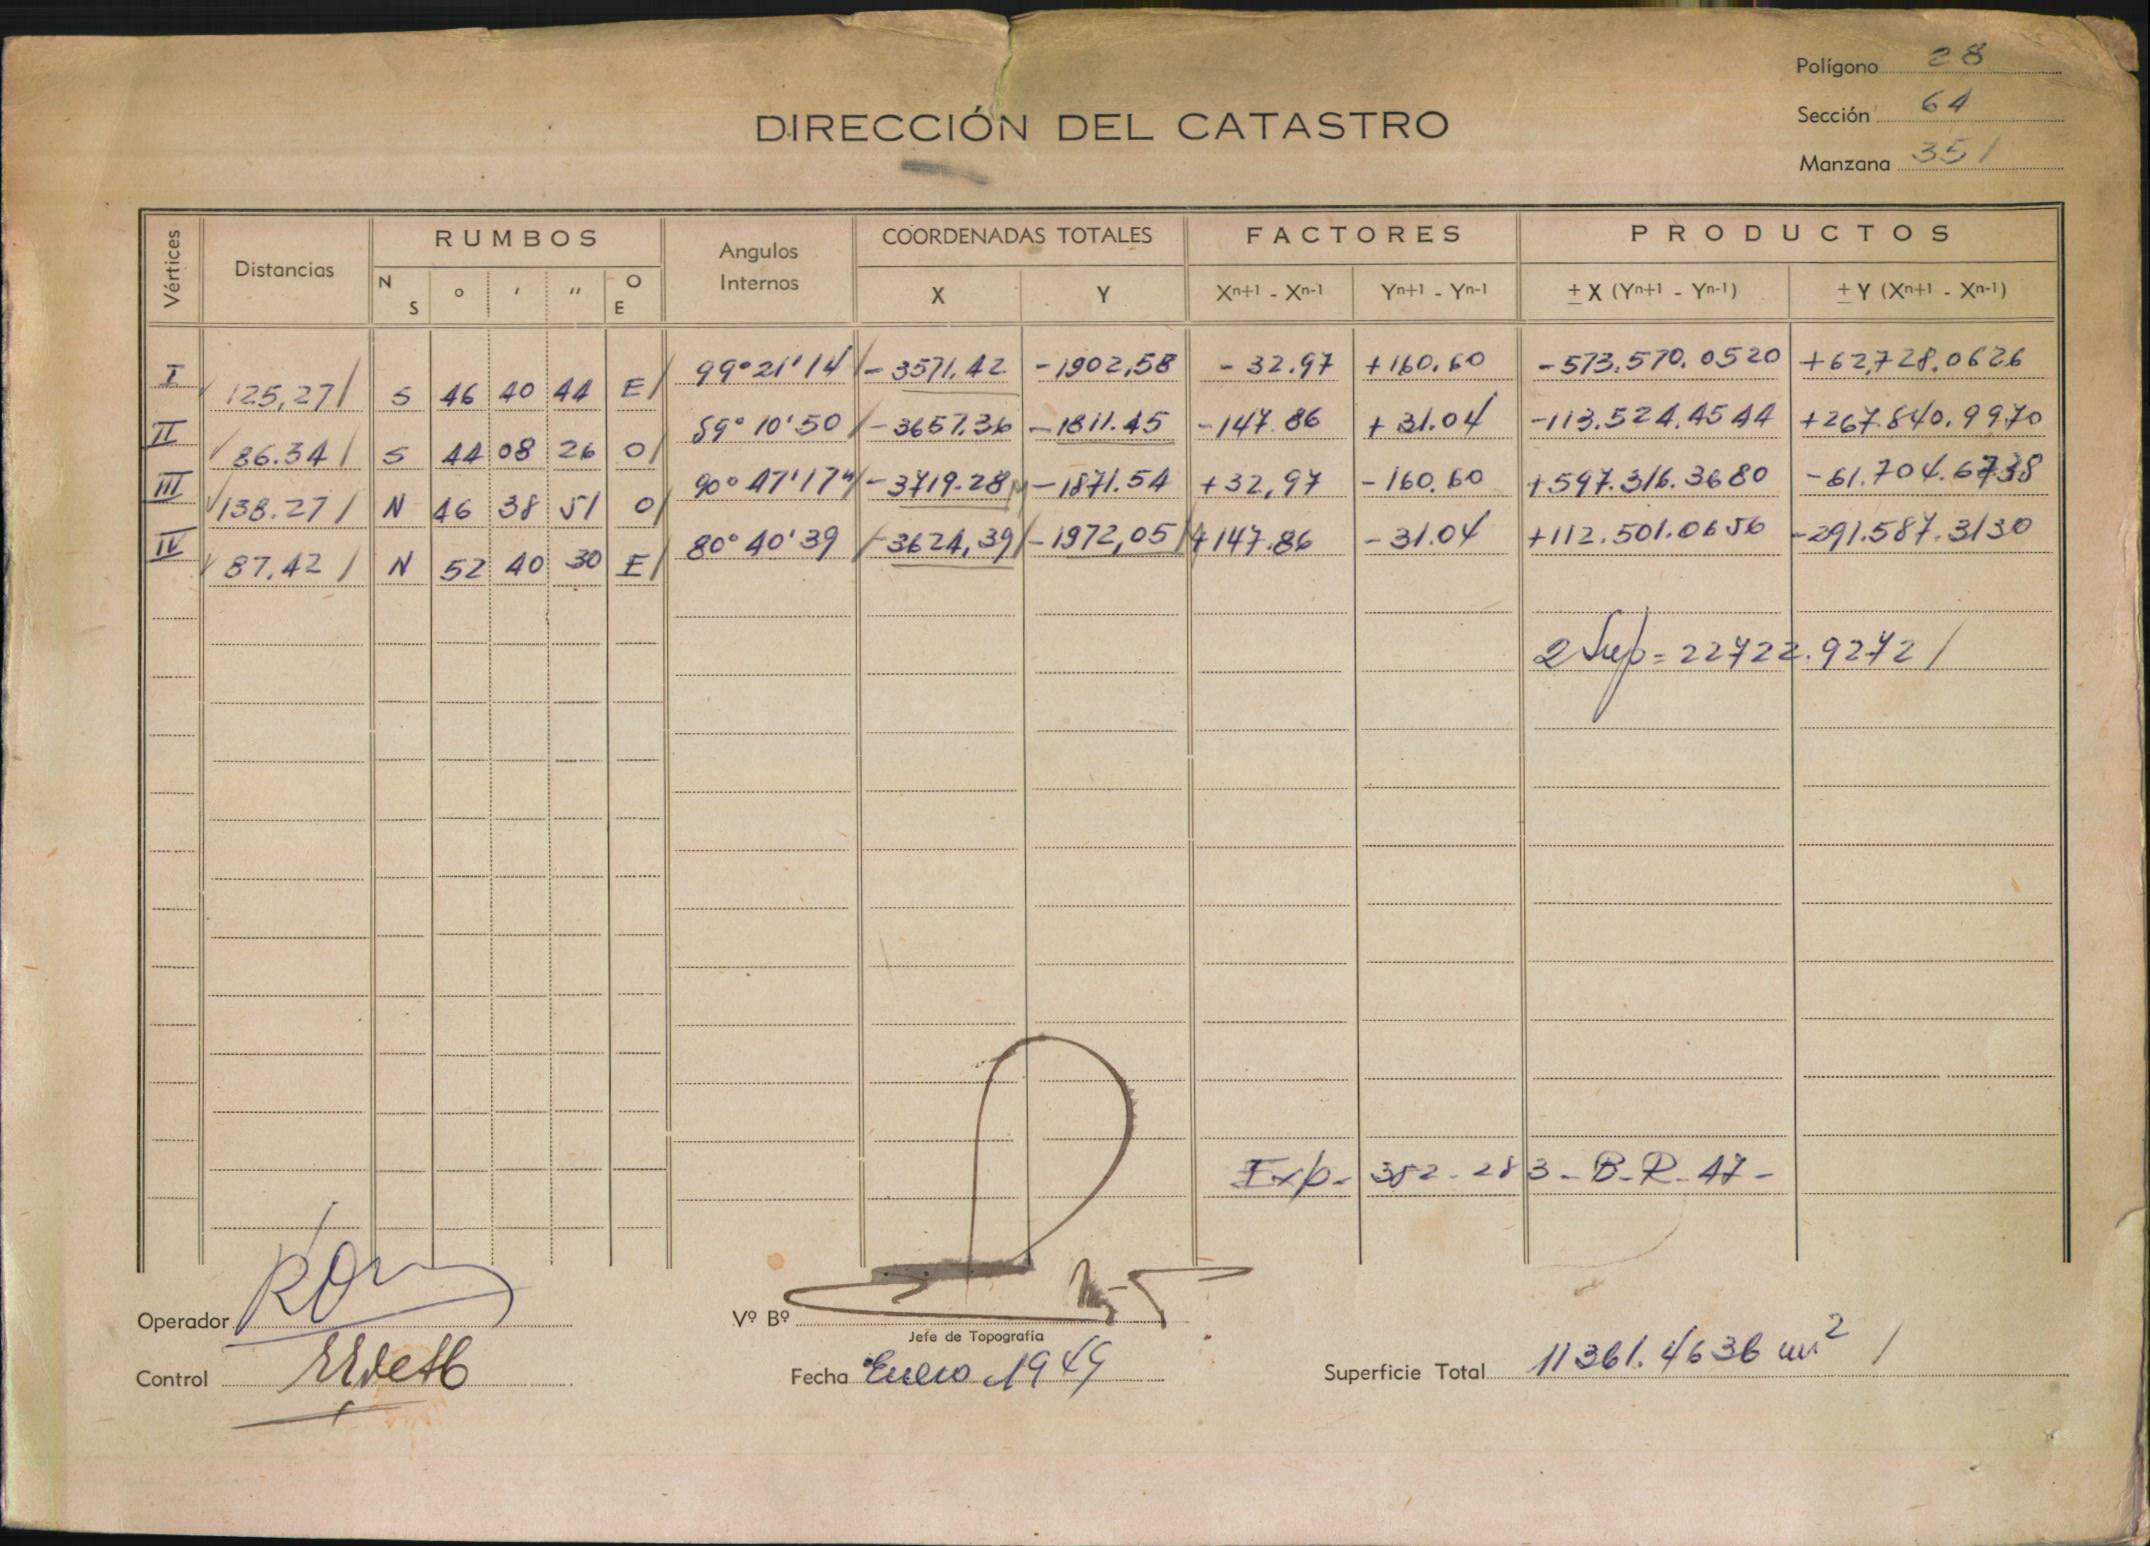 Polígono 28
Sección 64
Manzana 351
DIRECCIÓN DEL CATASTRO
Vértices Distancias RUMBOS Angulos Internos COORDENADAS TOTALES FACTORES PRODUCTOS
N S ° ' " O E X Y Xn+1 - Xn-1 Yn+1 - Yn-1 ± X (Yn+1 - Yn-1) ± Y (Xn+1 - Xn-1)
I 125,27/ S 46 40 44 E/ 99°21'14/ -3571.42 -1902,58 -32.97 +160.60 -573.570.0520 +62,728.0626
II 86.34/ S 44 08 26 O/ 89°10'50/ -3657.36 -1811.45 -147.86 +31.04 -113.524.4544 +267.840.9970
III 138.27/ N 46 38 51 O/ 90°47'17"/ -3719.28 -1871.54 +32,97 -160.60 +597.316.3680 -61.704.6738
IV 87,42/ N 52 40 30 E/ 80°40'39/ -3624,39/ -1972,05/ +147.86 -31.04 +112.501.0656 -291.587.3130
2 Sup = 22722.9272/
Exp. 382-283-B-R-47-
Operador
Vº Bº
Jefe de Topografía
Control
Fecha Enero 1949
Superficie Total 11361.4636 m² /